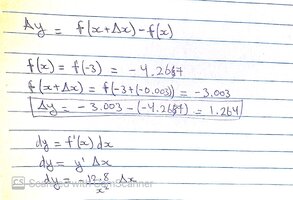 Δy = f(x+Δx)-f(x)
f(x) = f(-3) = -4.2667
f(x+Δx) = f(-3+(-0.003)) = -3.003
Δy = -3.003 - (-4.2667) = 1.264
dy = f'(x) dx
dy = y' Δx
dy = -12.8/x² Δx
CS Scanned with CamScanner